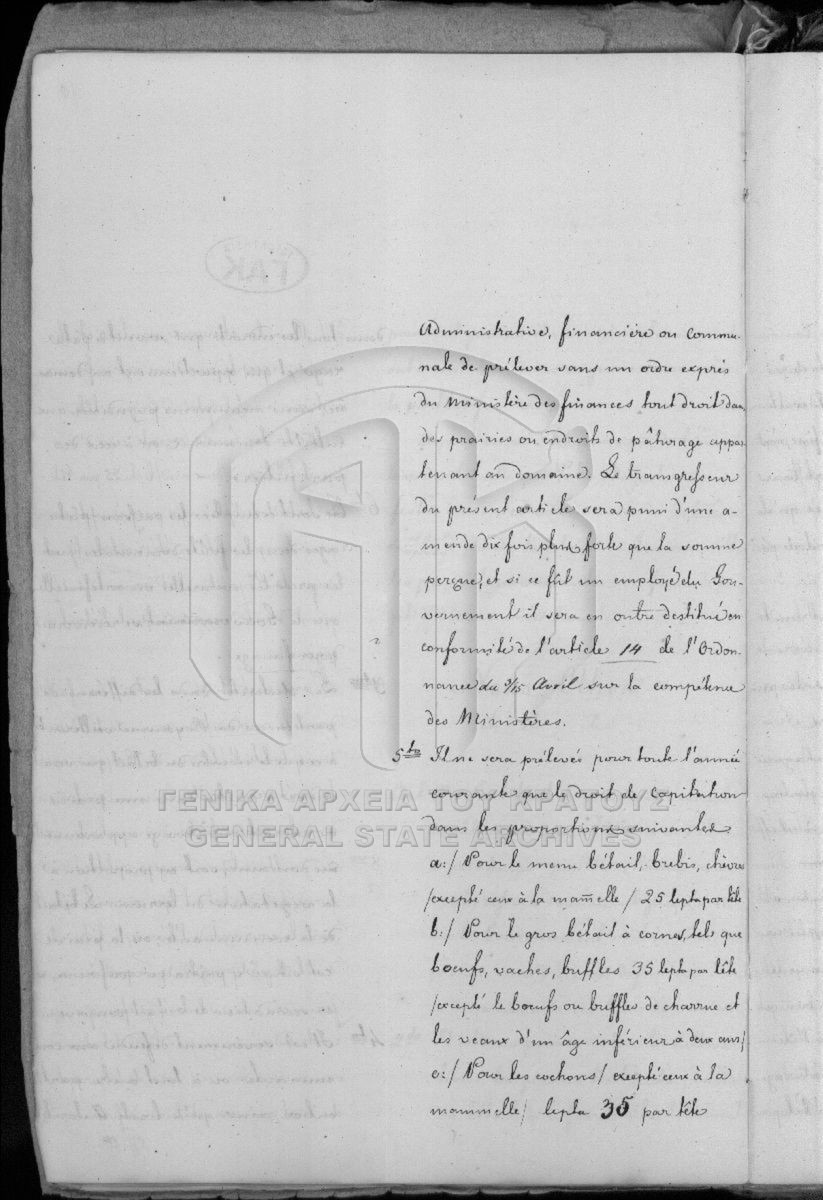 administrative, financière ou commu-
nale de prélever sans un ordre exprès
du Ministère des finances tout droit dans
des prairies ou endroits de pâturage appar-
tenant au domaine. Le transgresseur
du présent article sera puni d'une a-
mende dix fois plus forte que la somme
perçue, et si ce fût un employé du Gou-
vernement il sera en outre destitué en
conformité de l'article 14 de l'Ordon-
nance du 3/15 Avril sur la compétence
des Ministères.
5to Il ne sera prélevée pour toute l'année
courante que le droit de capitation
dans les proportions suivantes
a:/ Pour le menu bétail, brebis, chèvres
/excepté ceux à la mam̄elle/ 25 lepta par tête
b:/ Pour le gros bétail à cornes, tels que
boeufs, vaches, buffles 35 lepta par tête
/excepté le boeufs ou buffles de charrue et
les veaux d'un âge inférieur à deux ans/
c:/ Pour les cochons/ excepté ceux à la
mammelle/ lepta 35 par tête
ΓΕΝΙΚΑ ΑΡΧΕΙΑ ΤΟΥ ΚΡΑΤΟΥΣ
GENERAL STATE ARCHIVES
ΓΑΚ